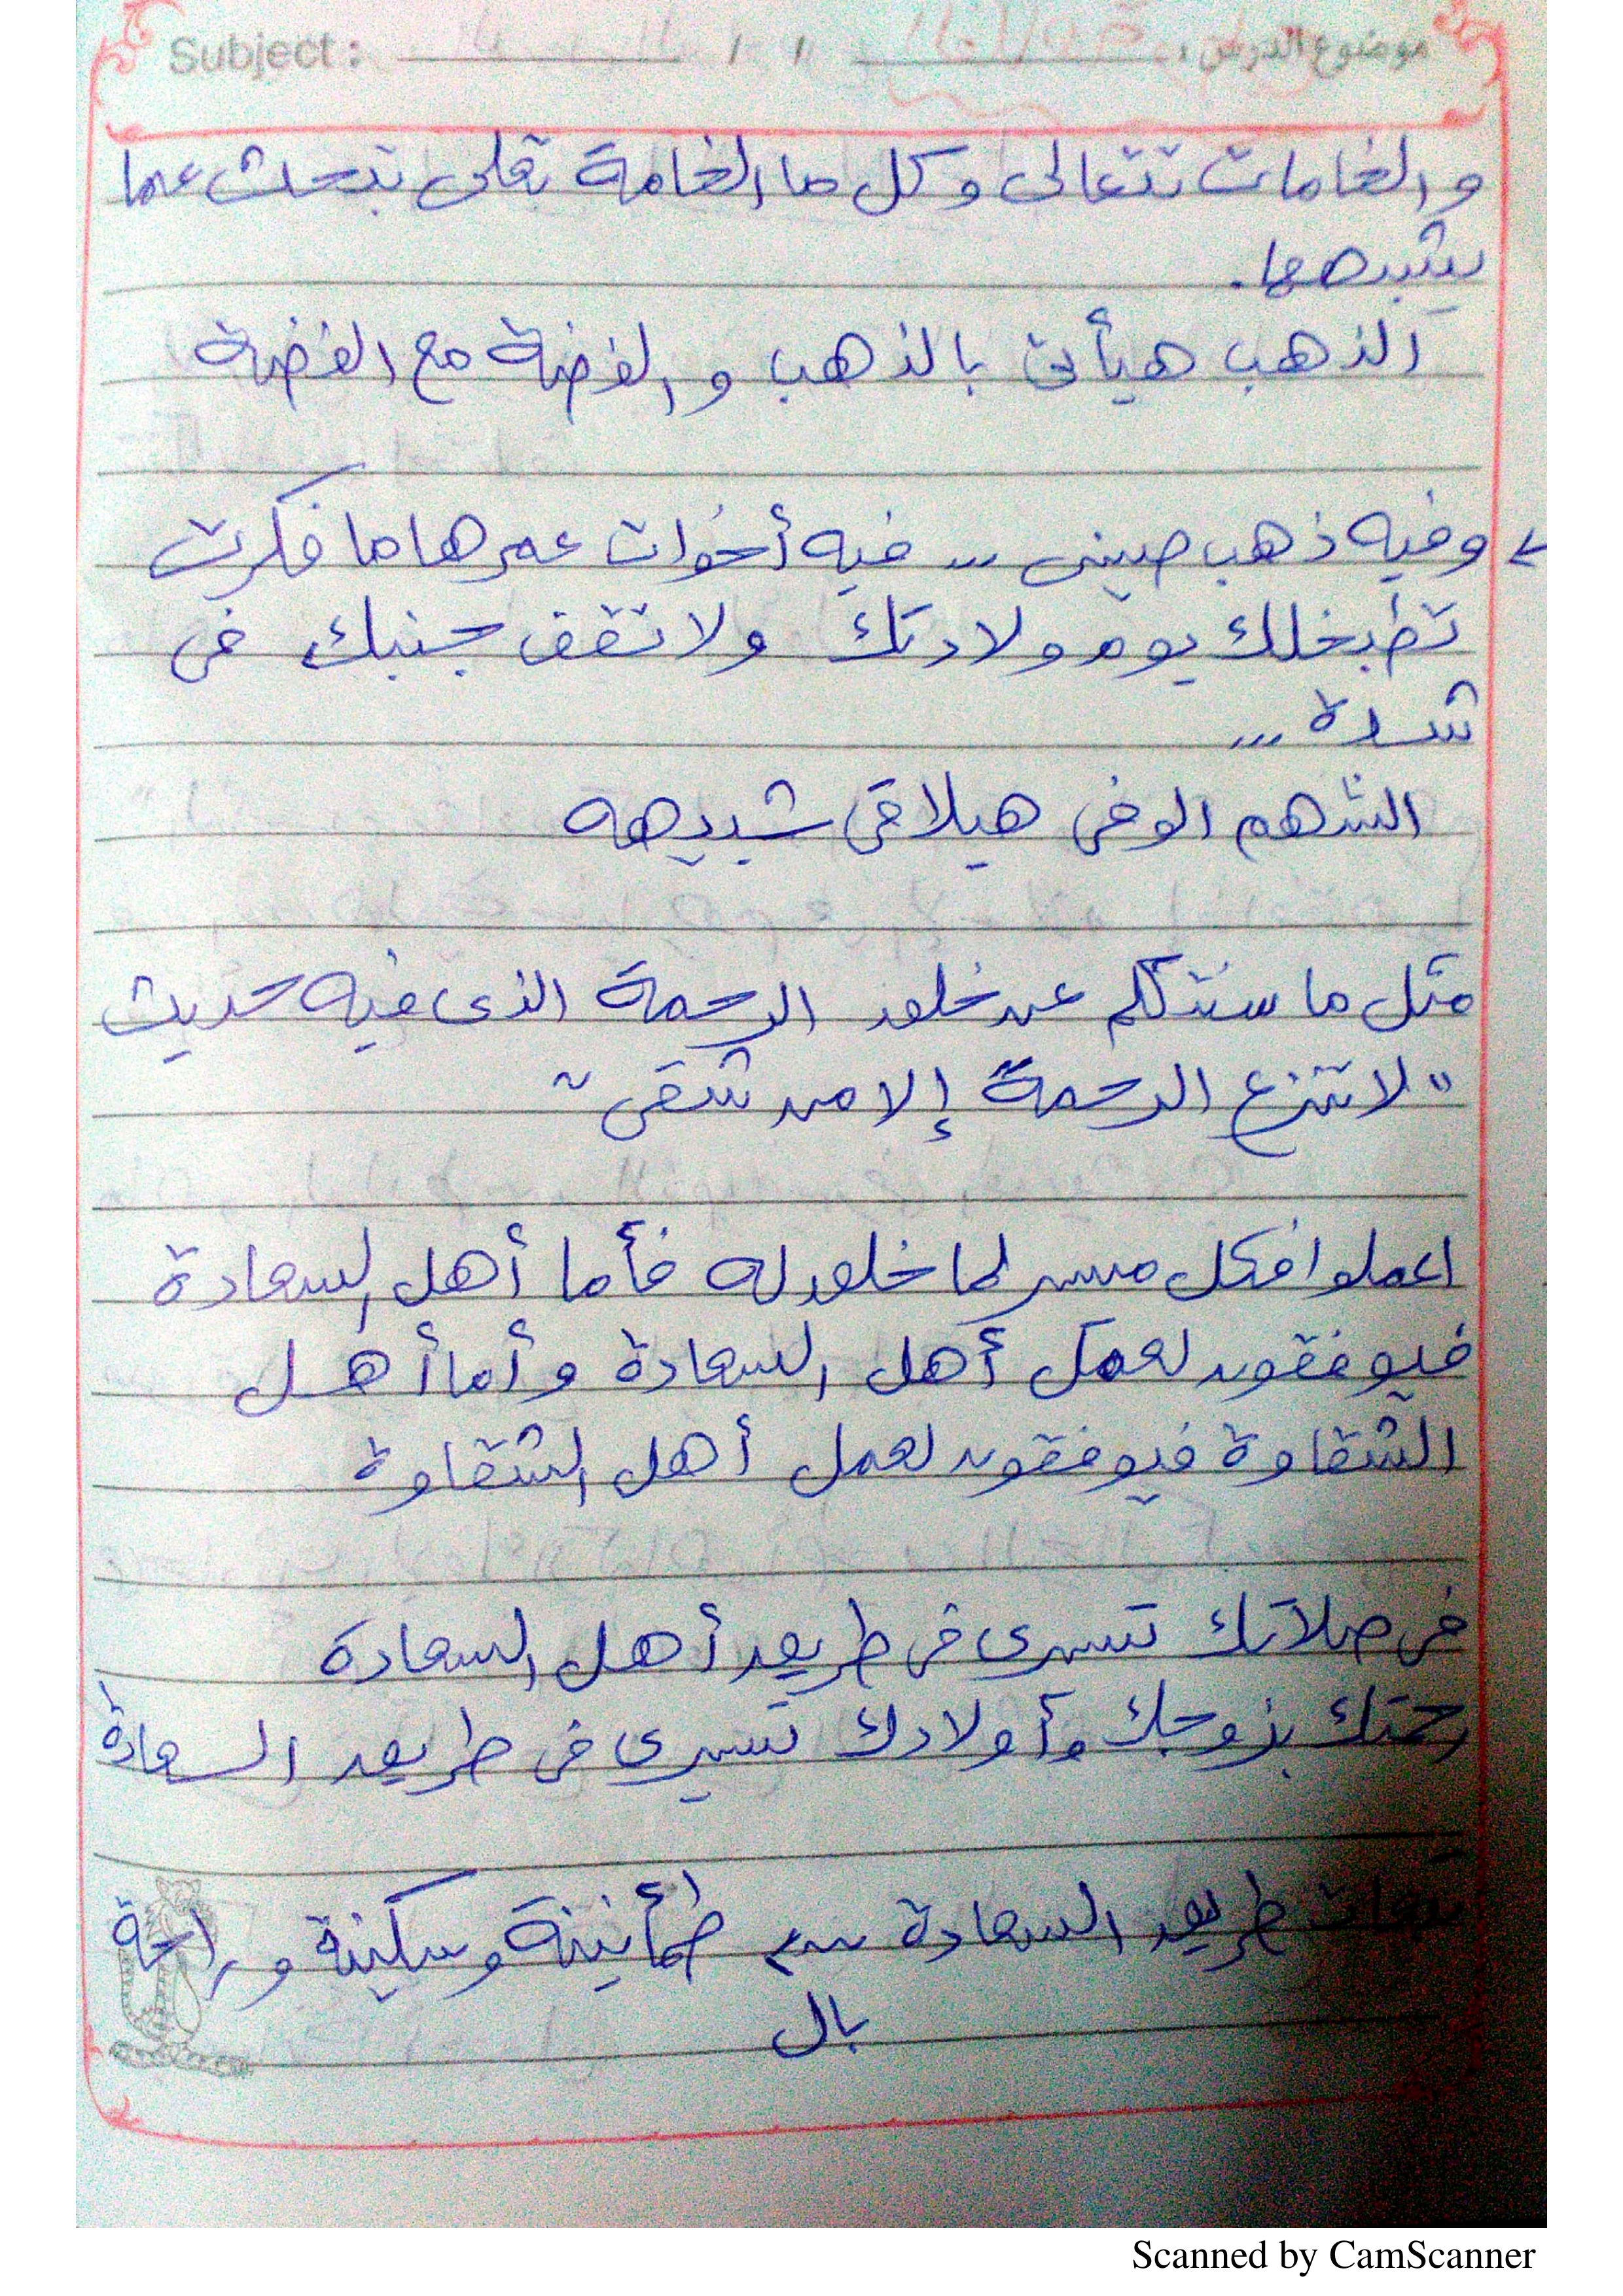 Subject : / / موضوع الدرس :
والخامات تتعالى وكل ما الخامة تعلى تبحث عما
يشبهها.
الذهب هيأتى بالذهب والفضة مع الفضة
وفيه ذهب صينى ... فيه أخوات عمرها ما فكرت
تطبخلك يوم ولادتك ولا تقف جنبك فى
شدة ...
الشهم الوفى هيلاقى شبيهه
مثل ما سنتكلم عن خلق الرحمة الذى فيه حديث
"لا تنزع الرحمة إلا من شقى"
اعملوا فكل ميسر لما خلق له فأما أهل السعادة
فيوفقون لعمل أهل السعادة وأما أهل
الشقاوة فيوفقون لعمل أهل الشقاوة
فى صلاتك تسيرى فى طريق أهل السعادة
رحمتك بزوجك وأولادك تسيرى فى طريق السعادة
طريق السعادة من طمأنينة وسكينة وراحة
بال
Scanned by CamScanner